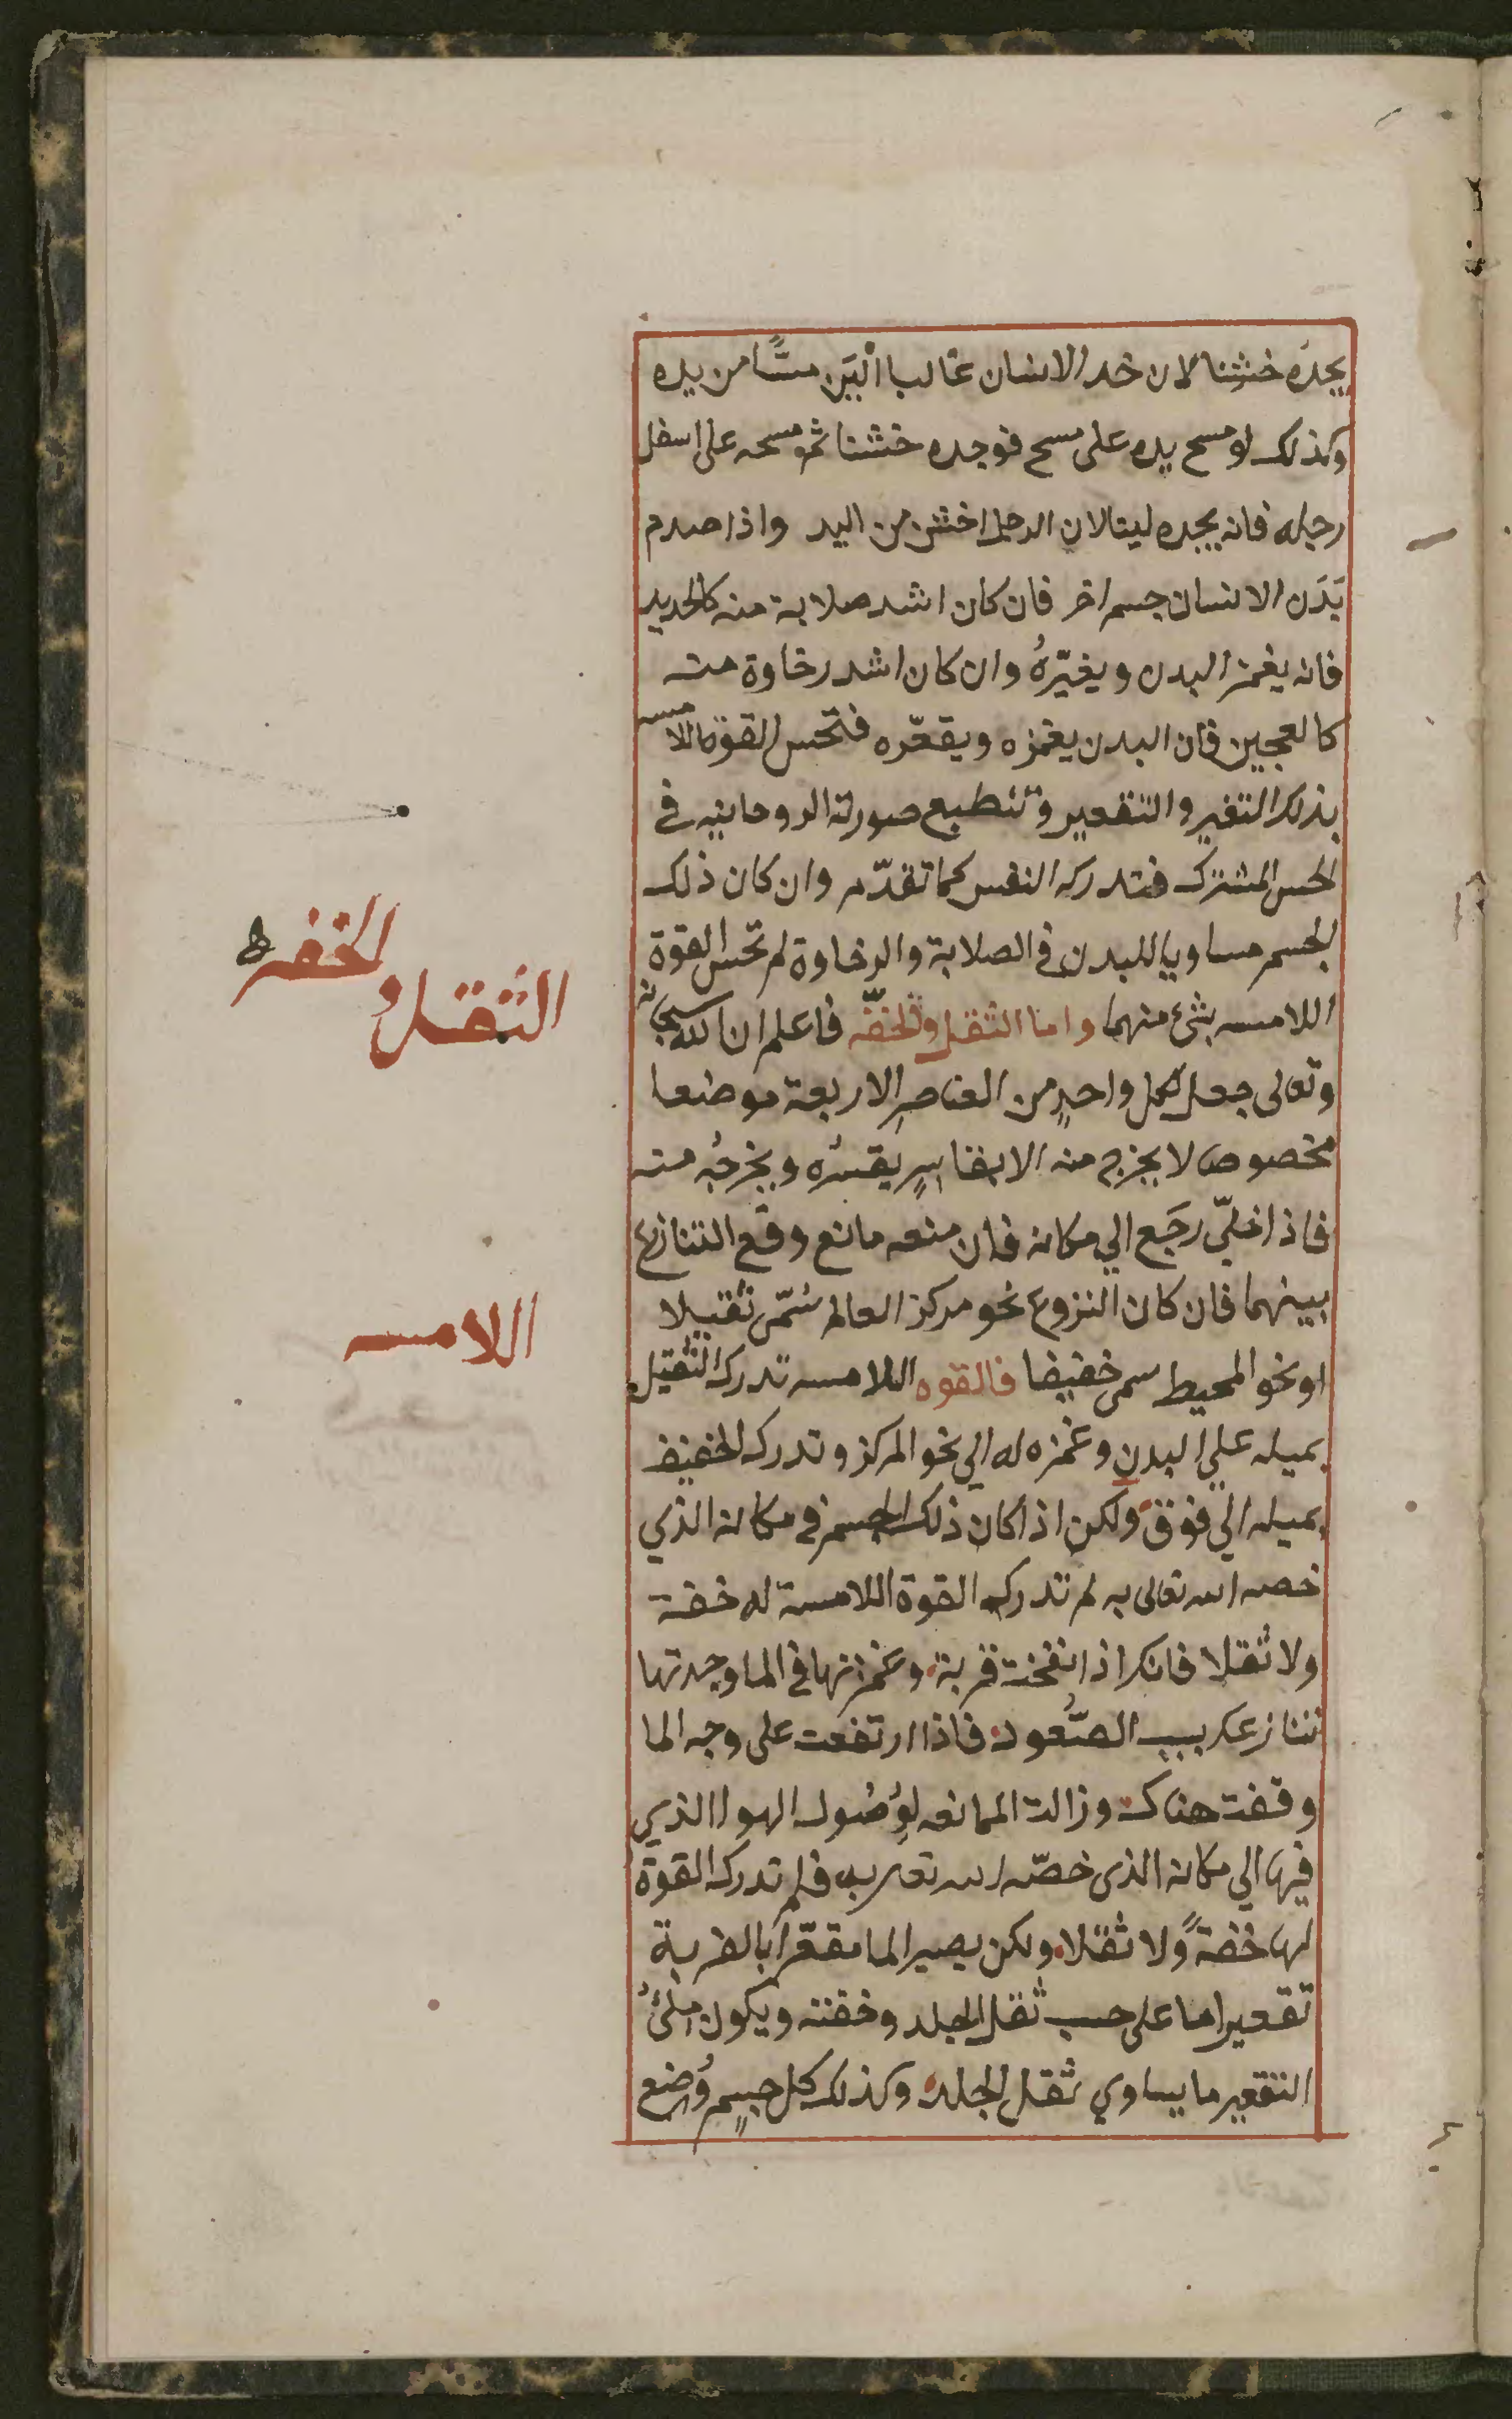 يجدَه خشِنا لان خد الانسان غالبا اليَن مسًّا من يده
وكذلك لو مسح يده على مسح فوجده خشنا ثم مسحه على اسفل
رجله فانه يجده لينا لان الرجل اخشن من اليد واذا صدم
بَدَن الانسان جسم اخر فان كان اشد صلابة منه كالحديد
فانه يغمز البدن ويغيّرهُ وان كان اشد رخاوة منه
كالعجين فان البدن يغمزه ويقعّره فتحس القوة اللامسه
بذلك التغير والتقعير وتنطبع صورته الروحانيه في
الحس المشترك فتدركه النفس كما تقدّم وان كان ذلك
الجسم مساويا للبدن في الصلابة والرخاوة لم تحس القوة
اللامسه بشئ منهما واما الثقل والخفّه فاعلم ان الله سبحانه
وتعالى جعل لكل واحدٍ من العناصرِ الاربعة موضعا
مخصوصا لا يخرج منه الا بقاسرٍ يقسُره ويخرجُه منه
فاذا خلّي رجَع الي مكانه فان منعه مانع وقع التنازع
بينهما فان كان النزوع نحو مركز العالم سُمّى ثقيلا
او نحو المحيط سمى خفيفا فالقوه اللامسه تدرك الثقيل
بميله علي البدن وغمزه له الي نحو المركز وتدرك الخفيف
بميله الي فوق ولكن اذا كان ذلك الجسم في مكانه الذي
خصه الله تعالى به لم تدرك القوة اللامسة له خفة
ولا ثقلا فانك اذا نفخت قربة وغمزتها في الما وجدتها
تنازعك بسبب الصُّعود فاذا ارتفعت على وجه الما
وقفت هناك وزالت الممانعه لوُصُول الهوا الذي
فيها الي مكانه الذى خصّه الله تعالى به فلم تدرك القوة
لها خفةً ولا ثقلا ولكن يصير الما مقعّرا بالقربة
تقعيرا ما على حسب ثقل الجلد وخفته ويكون مِلئُ
التقعير ما يساوي ثقل الجلد وكذلك كل جسمٍ وُضع
الثقل والخفه
اللامسه